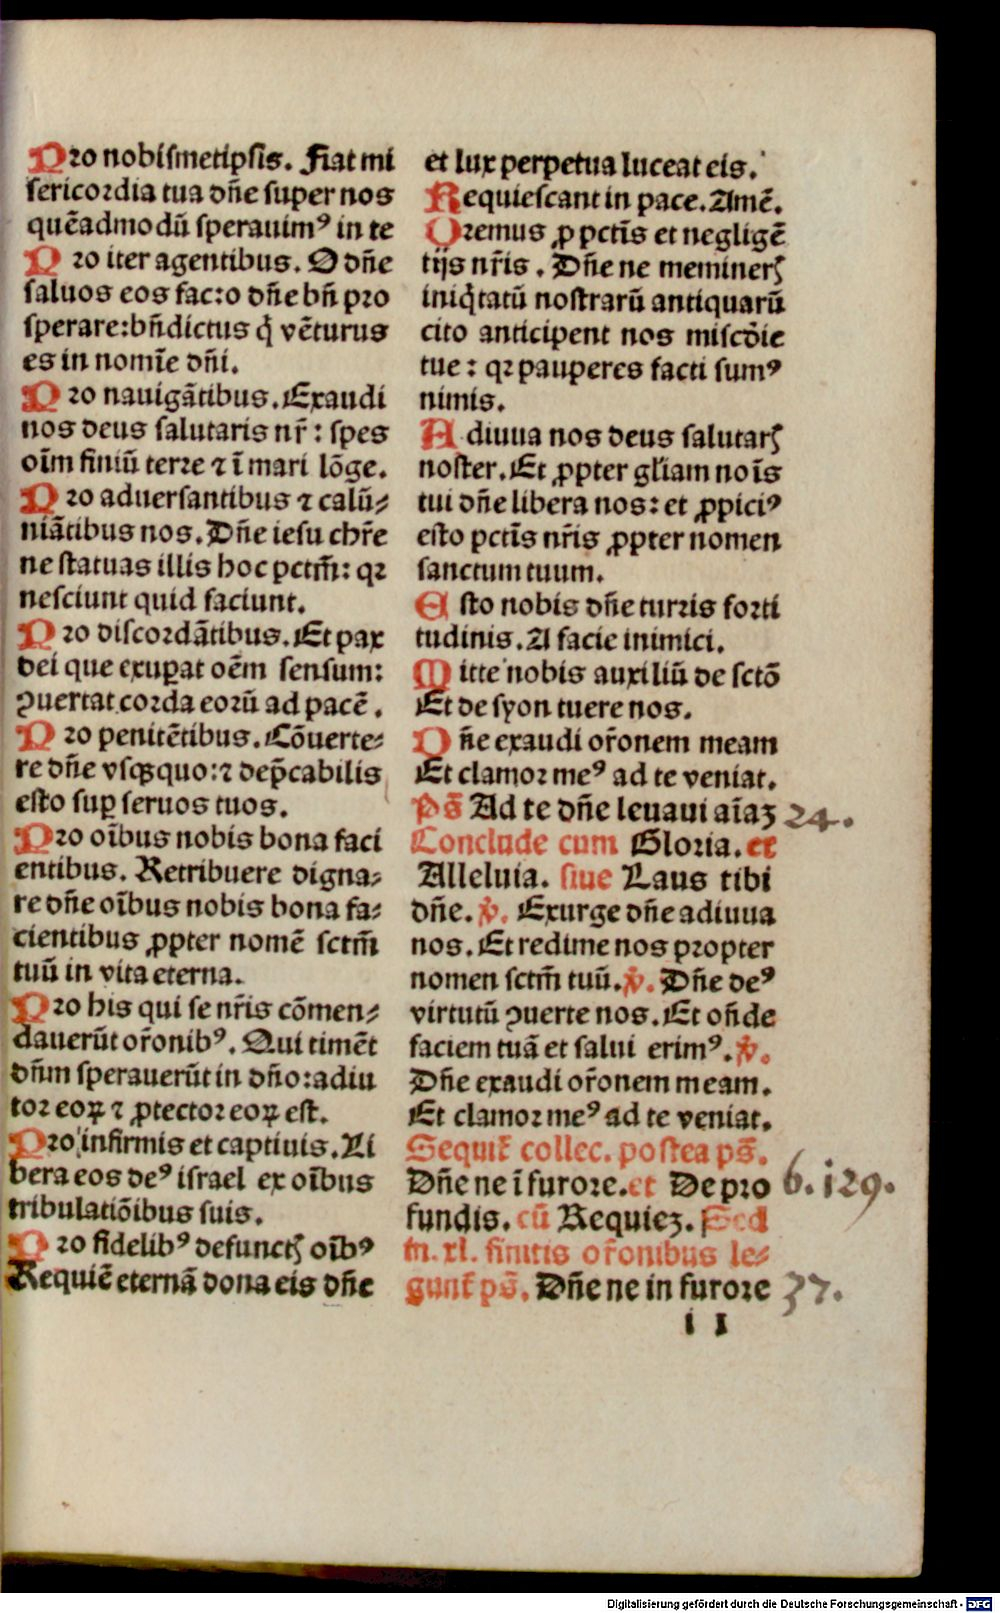 Pro nobiſmetipſis. Fiat mi
ſericordia tua dñe ſuper nos
quẽadmodũ ſperauimꝰ in te
Pro iter agentibus. O dñe
ſaluos eos fac:o dñe bñ pro
ſperare:bñdictus q̇ vẽturus
es in nomĩe dñi.
Pro nauigãtibus. Exaudi
nos deus ſalutaris nr̃ : ſpes
oĩm finiũ terre ⁊ ĩ mari lõge.
Pro aduerſantibus ⁊ calũ⸗
niãtibus nos. Dñe ieſu chr̃e
ne ſtatuas illis hoc pctm̃: qꝛ
neſciunt quid faciunt.
Pro diſcordãtibus. Et pax
dei que exuꝑat oẽm ſenſum:
ꝯuertat corda eorũ ad pacẽ.
Pro penitẽtibus. Cõuerte⸗
re dñe vſqꝫquo:⁊ dep̃cabilis
eſto ſuꝑ ſeruos tuos.
Pro oĩbus nobis bona faci
entibus. Retribuere digna⸗
re dñe oĩbus nobis bona fa⸗
cientibus ꝓpter nomẽ ſctm̃
tuũ in vita eterna.
Pro his qui ſe nr̃is cõmen⸗
dauerũt or̃onibꝰ. Qui timẽt
dñm ſperauerũt in dño:adiu
tor eoꝝ ⁊ ꝓtector eoꝝ eſt.
Pro infirmis et captiuis. Li
bera eos deꝰ iſrael ex oĩbus
tribulatiõibus ſuis.
Pro fidelibꝰ defunctꝭ oĩbꝰ
Requiẽ eternã dona eis dñe
et lux perpetua luceat eis.
Requieſcant in pace. Amẽ.
Oremus ꝓ pctĩs et negligẽ
tijs nr̃is. Dñe ne meminerꝭ
iniq̇tatũ noſtrarũ antiquarũ
cito anticipent nos miſcõie
tue : qꝛ pauperes facti ſumꝰ
nimis.
Adiuua nos deus ſalutarꝭ
noſter. Et ꝓpter gl̃iam noĩs
tui dñe libera nos: et ꝓpiciꝰ
eſto pctĩs nr̃is ꝓpter nomen
ſanctum tuum.
Eſto nobis dñe turris forti
tudinis. A facie inimici.
Mitte nobis auxiliũ de ſctõ
Et de ſyon tuere nos.
Dñe exaudi or̃onem meam
Et clamor meꝰ ad te veniat.
Ps̃ Ad te dñe leuaui aĩaꝫ 24.
Conclude cum Gloria. et
Alleluia. ſiue Laus tibi
dñe. ℣. Exurge dñe adiuua
nos. Et redime nos propter
nomen ſctm̃ tuũ. ℣. Dñe deꝰ
virtutũ ꝯuerte nos. Et oñde
faciem tuã et ſalui erimꝰ. ℣.
Dñe exaudi or̃onem meam.
Et clamor meꝰ ad te veniat.
Sequit̃ collec. poſtea ps̃.
Dñe ne ĩ furore. et De pro 6. 129.
fundis. cũ Requieꝫ. Sed
in. xl. finitis or̃onibus le⸗
gunt̃ ps̃. Dñe ne in furore 37.
I I
Digitalisierung gefördert durch die Deutsche Forschungsgemeinschaft - DFG